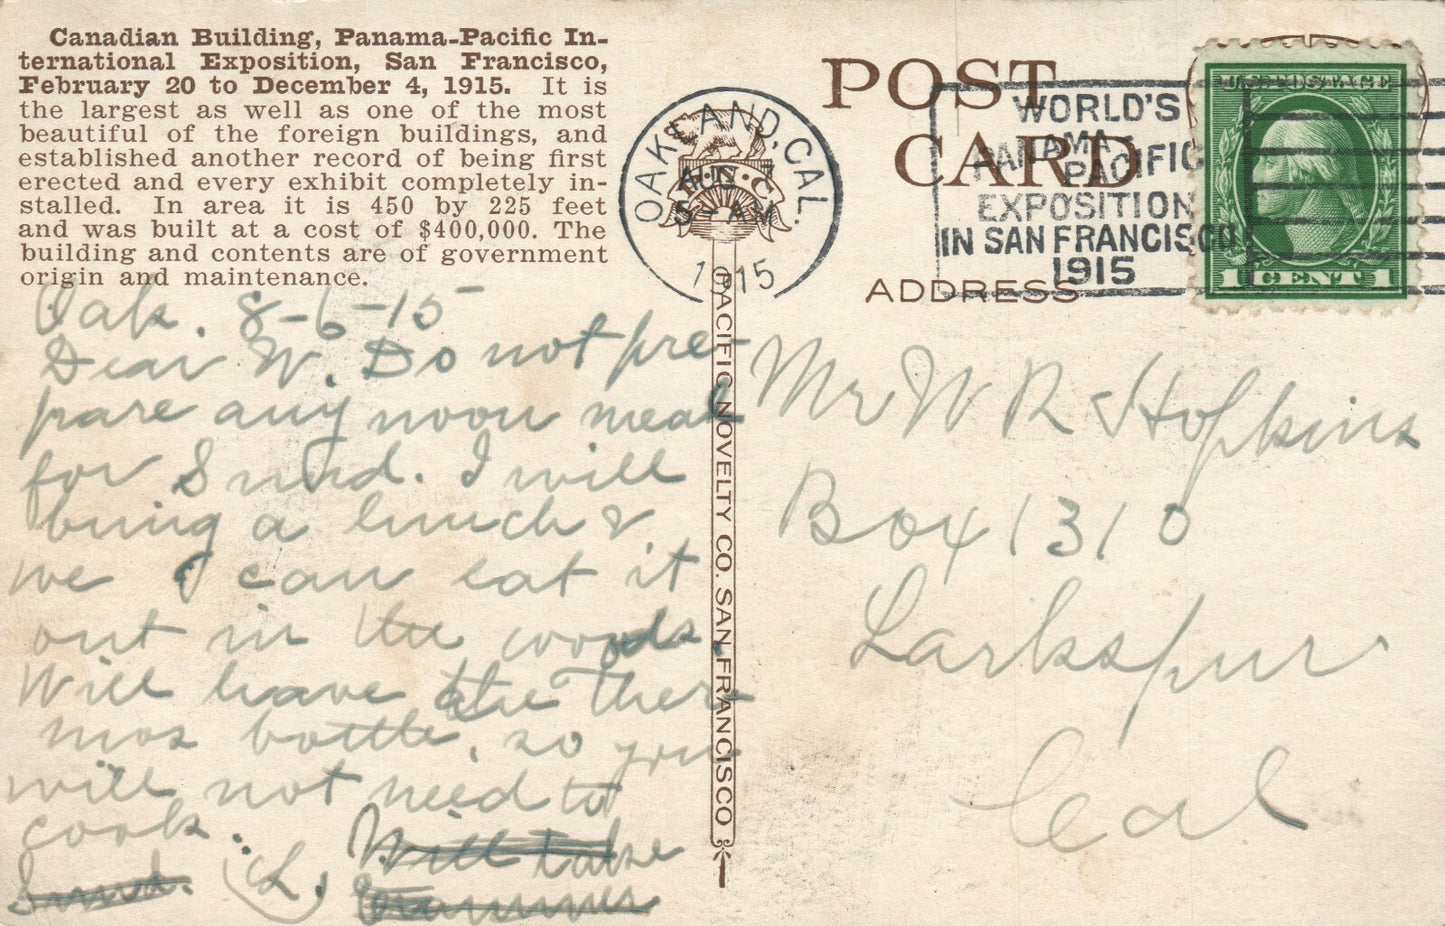 Canadian Building, Panama-Pacific In-
ternational Exposition, San Francisco,
February 20 to December 4, 1915. It is
the largest as well as one of the most
beautiful of the foreign buildings, and
established another record of being first
erected and every exhibit completely in-
stalled. In area it is 450 by 225 feet
and was built at a cost of $400,000. The
building and contents are of government
origin and maintenance.
Oak. 8-6-15
Dear W. Do not pre-
pare any noon meal
for Sund. I will
bring a lunch &
we can eat it
out in the woods.
Will have the Ther-
mos bottle, so you
will not need to
cook.
Sund. L. Will take
Examiner
PACIFIC NOVELTY CO. SAN FRANCISCO
POST CARD
OAKLAND, CAL.
AUG 7
5 AM
1915
WORLD'S
PANAMA-
PACIFIC
EXPOSITION
IN SAN FRANCISCO
1915
U.S. POSTAGE
1 CENT 1
ADDRESS
Mr W R Hopkins
Box 1310
Larkspur
Cal